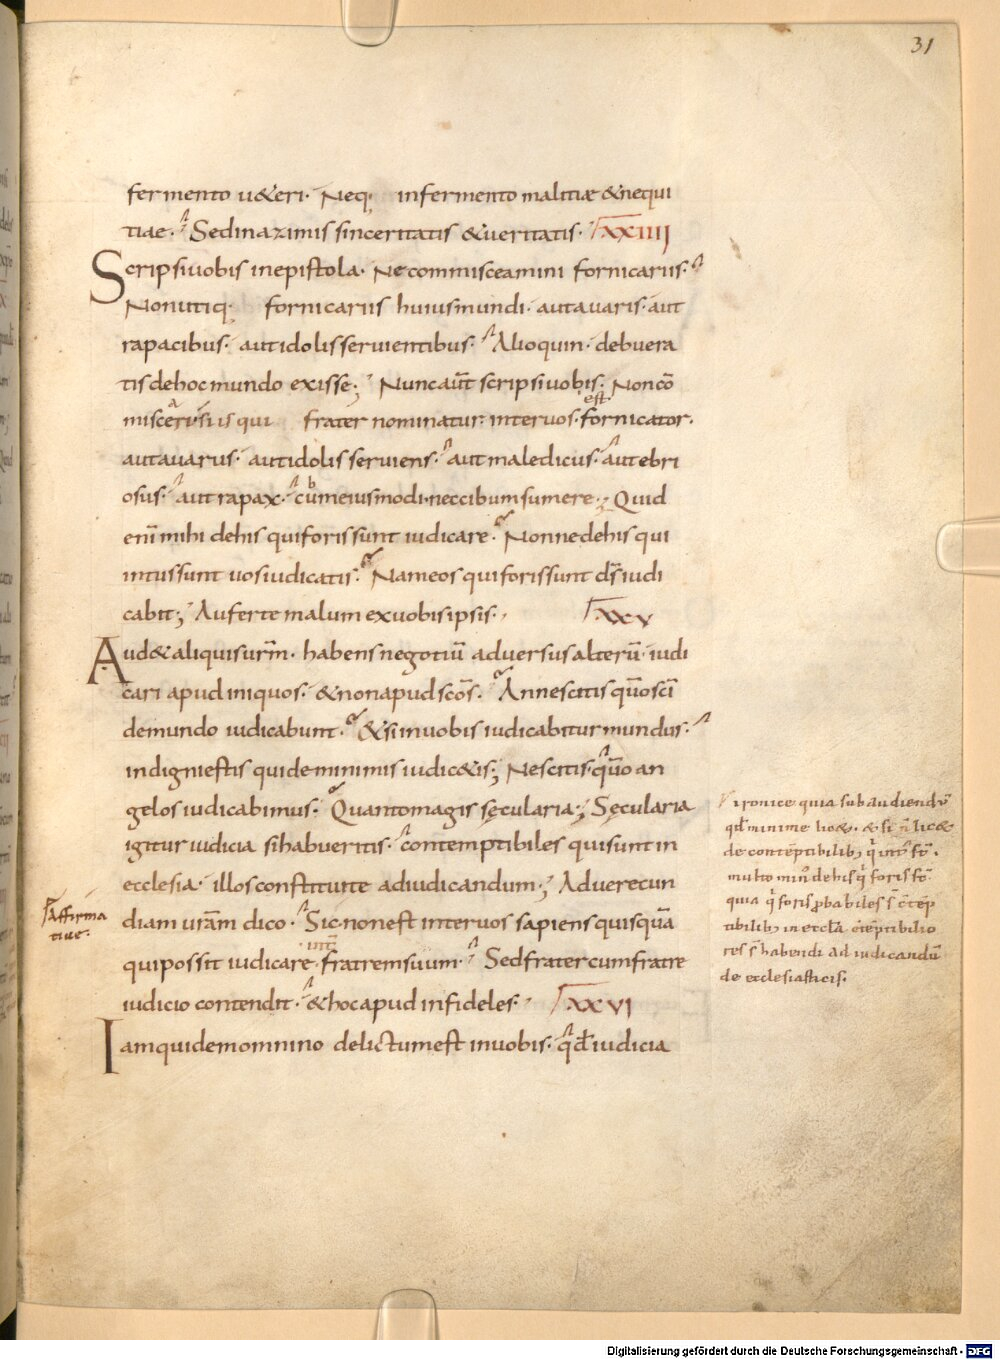 31
fermento u&eri· Neq; infermento malitiæ &nequi
tiae· Sedinazimis sinceritatis &ueritatis· XXIIII
Scripsiuobis inepistola· Necommisceamini fornicariis·
Nonutiq; fornicariis huiusmundi· autauaris· aut
rapacibus· autidolisseruientibus· Alioquin· debuera
tisdehocmundo exisse; Nuncaut̅ scripsiuobis; Nonco̅
est
frater nominatur· interuos· fornicator·
autauarus· autidolisseruiens· autmaledicus· autebri
osus· autrapax· cu̅meiusmodi·neccibumsumere; Quid
eni̅ mihi dehis quiforissunt iudicare· Nonnedehis qui
intussunt uosiudicatis· Nameos quiforissunt d̅s̅ iudi
cabit; Auferte malum exuobisipsis· XXV
Aud&aliquisur̅m̅· habensnegotiu̅ aduersusalteru̅· iudi
cari apud iniquos· &nonapudsc̅o̅s· Annescitis qu̅osc̅i
demundo iudicabunt· &siinuobis iudicabiturmundus·
indigniestis quideminimis iudic&is; Nescitis·qu̅o an
gelos iudicabimus· Quantomagis sęcularia; Sęcularia
igitur iudicia sihabueritis· contemptibiles quisuntin
ecclesia· illosconstituite adiudicandum; Aduerecun
diam ur̅am dico· Sic·nonest interuos sapiens quisqua̅
quipossit iudicare· fratremsuum· Sedfratercumfratre
iudicio contendit· &hocapud infideles· XXVI
Iamquidemomnino delictumest inuobis· qd̅ iudicia
affirma
tiue·
ironice quia subaudiendu̅
qd̅ minime lic&· &si n̅ lic&
de conte̅ptibilib;
multo min' dehis q̅ foris
quia q̅ foris ꝓbabiles
tibilib; in eccl̅a co̅te̅ptibilio
res s̅ habendi ad iudicandu̅
de ecclesiasticis·
Digitalisierung gefördert durch die Deutsche Forschungsgemeinschaft - DFG